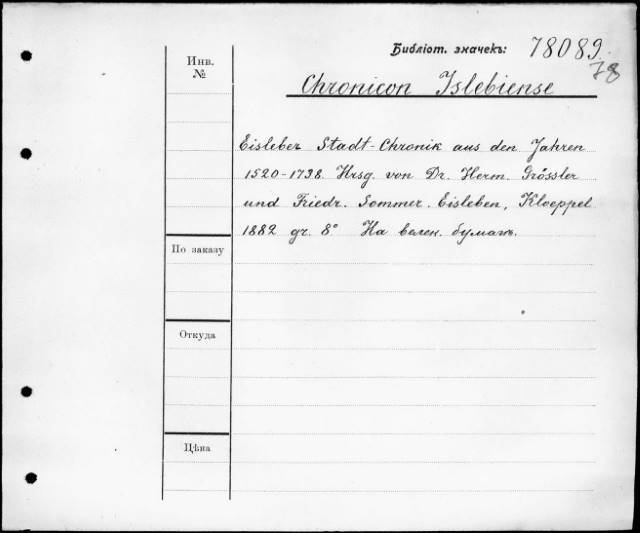 Библіот. значекъ: 78089.
78
Инв.
№
Chronicon Islebiense
Eisleber Stadt-Chronik aus den Jahren
1520-1738. Hrsg. von Dr. Herm. Grössler
und Friedr. Sommer. Eisleben, Kloeppel
1882 gr. 8° На велен. бумагѣ.
По заказу
Откуда
Цѣна